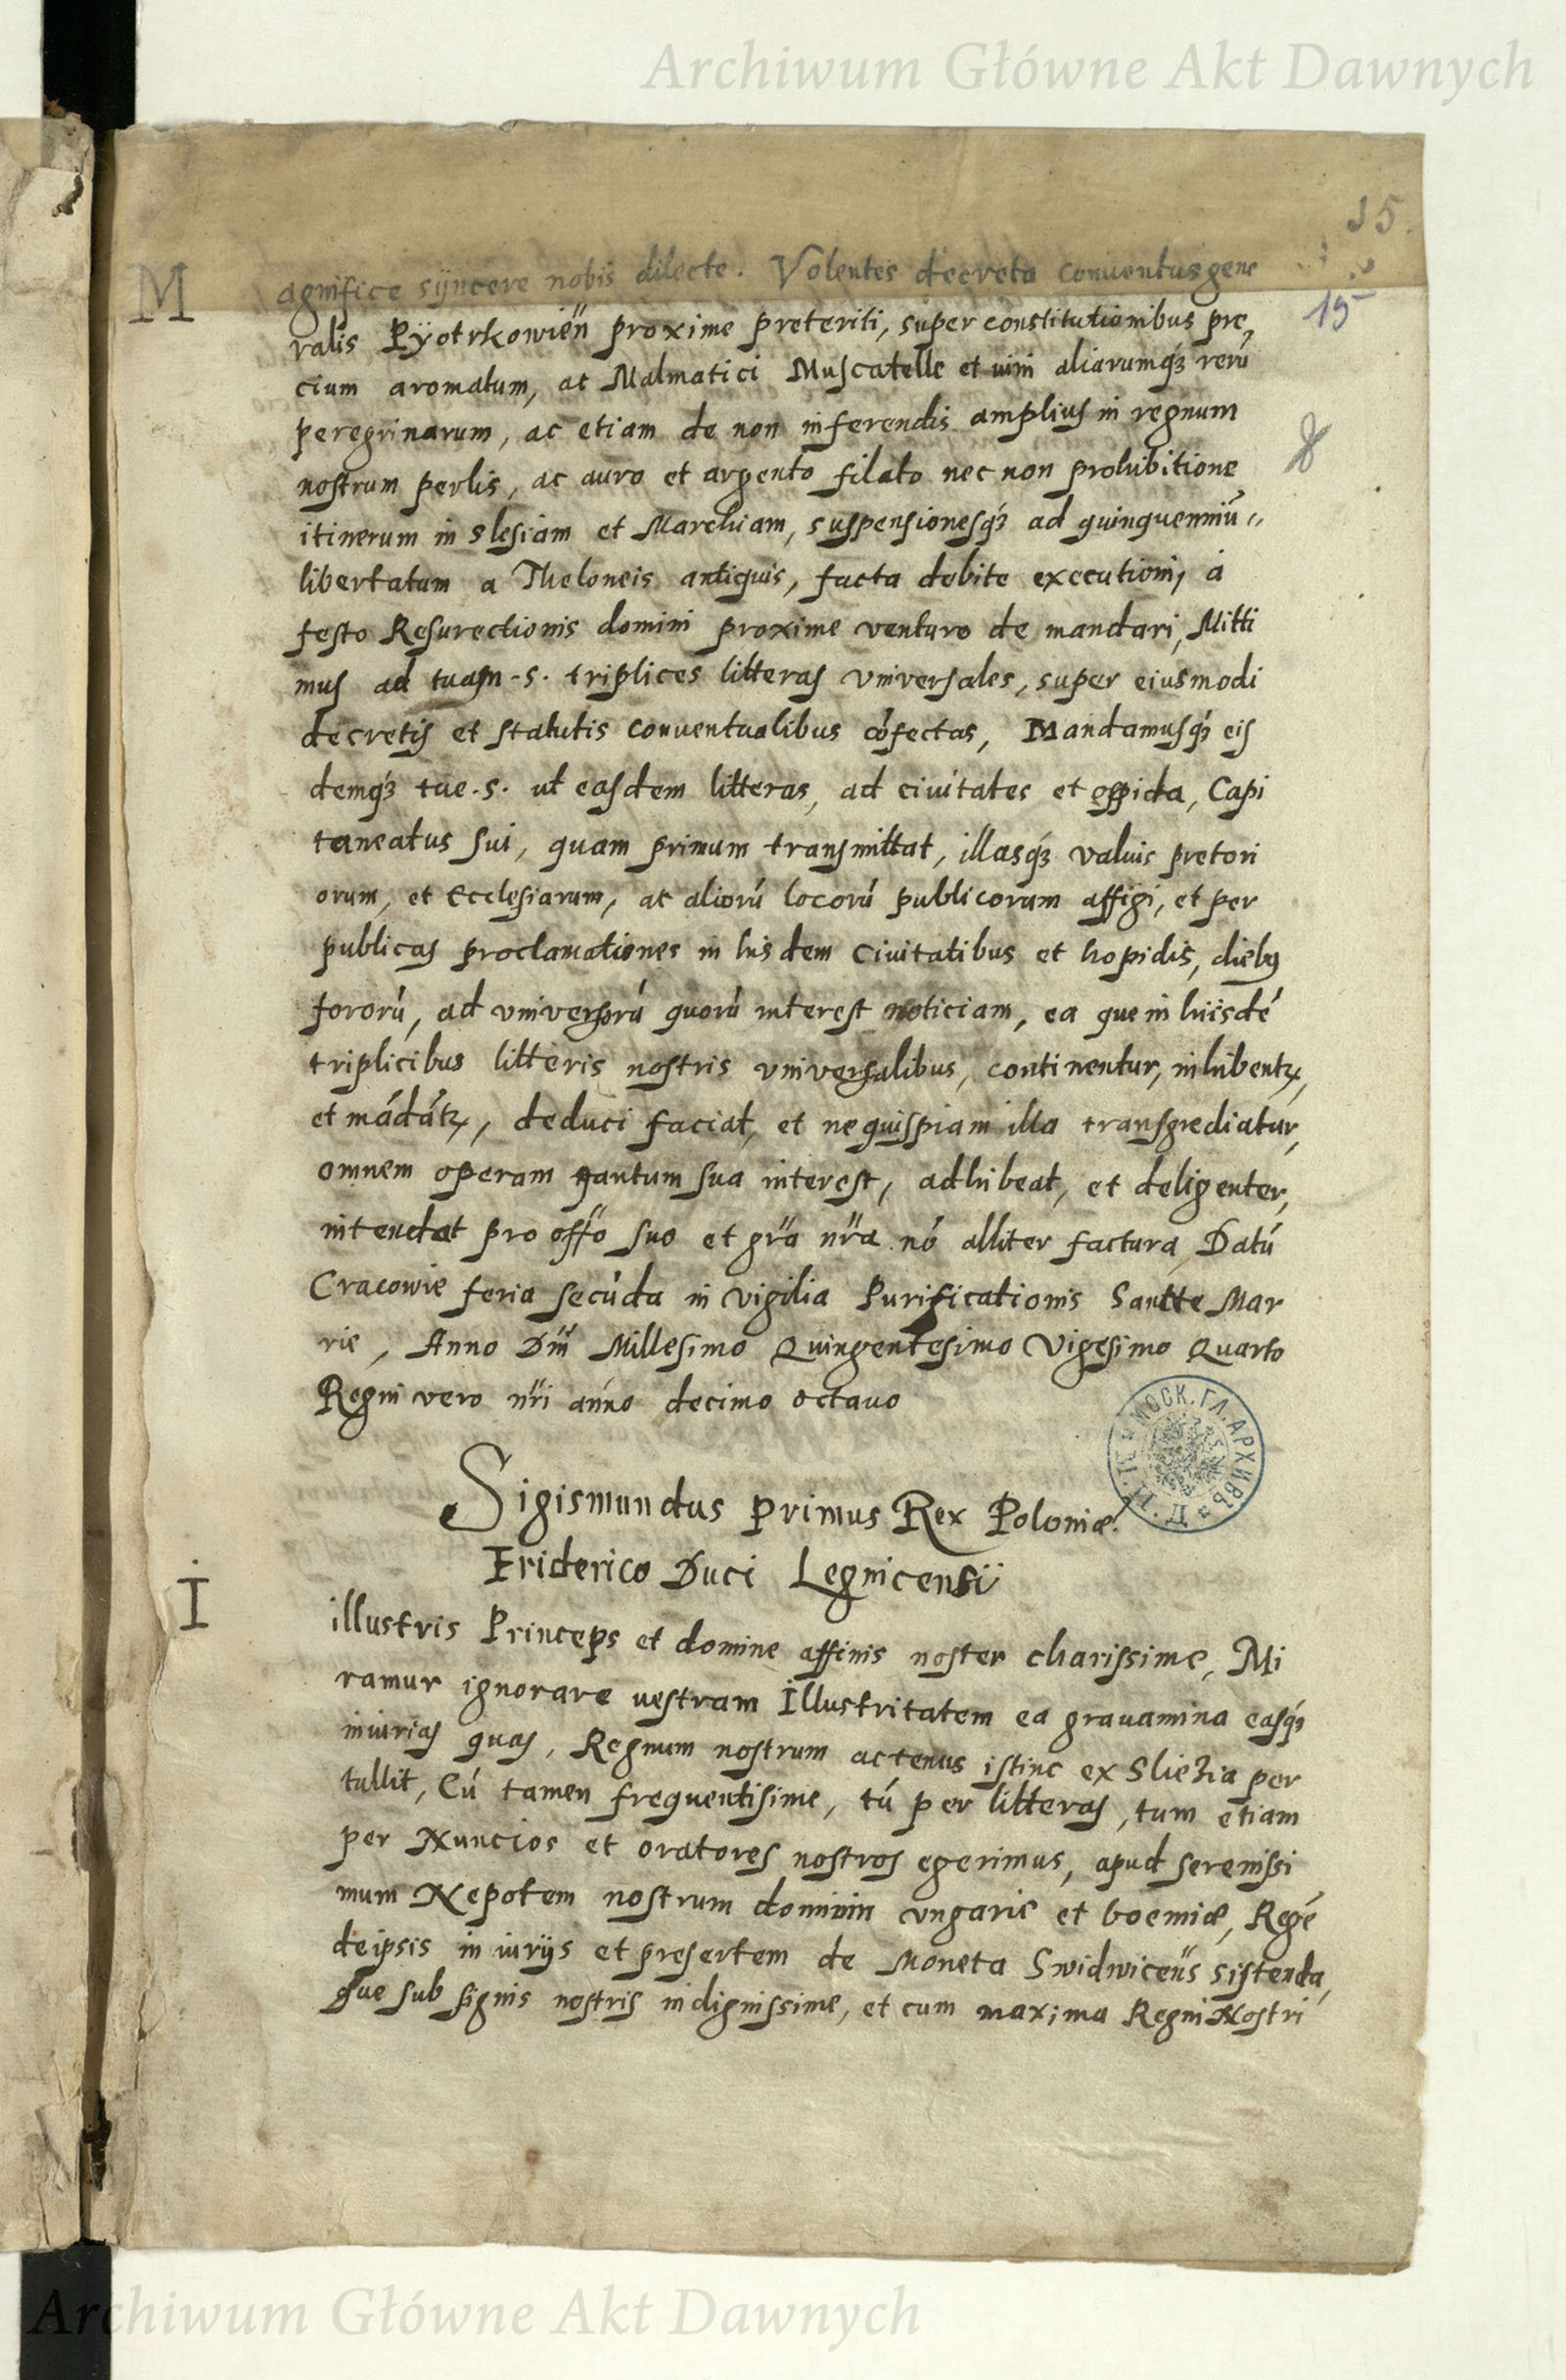 Archiwum Główne Akt Dawnych
35.
M
agnifice syncere nobis dilecte. Volentes decreta conuentus gene
15
ralis Pÿotrkowień proxime preteriti, super constitutionibus pre,
cium aromatum, ac Malmatici Muscatelle et uini aliarumqꝫ rerū
peregrinarum, ac etiam de non inferendis amplius in regnum
nostrum perlis, ac auro et argento filato nec non prohibitione
itinerum in Slesiam et Marchiam, suspensionesqꝫ ad quinquenniū
libertatum a Theloneis antiquis, facta debite executioni, a
festo Resurectionis domini proxime venturo de mandari, Mitti
mus ad tuam .s. triplices litteras vniuersales, super eiusmodi
decretis et statutis conuentualibus cōfectas, Mandamusqꝫ eis
demqꝫ tae .s. ut easdem litteras, ad ciuitates et oppida, Capi
taneatus sui, quam primum transmittat, illasqꝫ valuis pretori
orum, et Ecclesiarum, ac aliorū locorū publicorum affigi, et per
publicas proclamationes in hisdem Ciuitatibus et hopidis, diebꝰ
fororū, ad vniuersorū quorū interest noticiam, ea que in hiisdē
triplicibus litteris nostris vniuersalibus, continentur, inhibentꝛ,
et mādātꝛ, deduci faciat, et ne quispiam illa transgrediatur,
omnem operam qantum sua interest, adhibeat, et deligenter,
intendat pro offo suo et gra nra nō alliter factura, Datū
Cracowie feria secūda in vigilia Purificationis Sancte Mar
rie, Anno Dni Millesimo Quingentesimo Vigesimo Quarto
Regni vero nri anno decimo octauo
МОСК. ГЛ. АРХИВЪ
Sigismundus Primus Rex Poloniæ
Friderico Duci Legnicensi
I
illustris Princeps et domine affinis noster charissime, Mi
ramur ignorare uestram Illustritatem ea grauamina easqꝫ
iniurias quas, Regnum nostrum actenus istinc ex Sliezia per
tullit, Cū tamen frequentisime, tū per litteras, tum etiam
per Nuncios et oratores nostros egerimus, apud serenissi
mum Nepotem nostrum dominin vngarie et boemiæ, Regē
de ipsis in iurijs et presertem de Moneta Swidwiceñs sistenda,
que sub signis nostris indignissime, et cum maxima Regni Nostri
Archiwum Główne Akt Dawnych